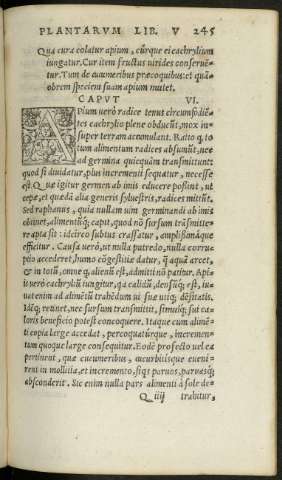 PLANTARVM LIB. V 245
Qua cura colatur apium, cúrque ei cachrylium
iungatur. Cur item fructus virides conseruẽ-
tur. Tum de cucumeribus præcoquibus: et quã-
obrem speciem suam apium mutet.
CAPVT VI.
APium verò radice tenus circũfodiẽ-
tes cachrylio plene obducũt, mox in
super terram accumulant. Ratio q, to
tum alimentum radices absumũt, nec
ad germina quicquàm transmittunt:
quod si diuidatur, plus incrementi sequatur, necesse
est. Quæ igitur germen ab imis educere possint, ut
cepæ, et quædã alia generis syluestris, radices mittũt.
Sed raphanus, quia nullam uim germinandi ab imis
obtinet, alimentũq; capit, quod nõ sursum trãsmitte-
re apta sit: idcirco subtus crassatur, amplißimáque
efficitur. Causa uerò, ut nulla putredo, nulla corru-
ptio accederet, humo cõgestitia datur, q̃ aquã arcet,
& in totũ, omne q, alienũ est, admitti nõ patitur. Api-
ii uerò cachryliũ iungitur, qa calidũ, densúq; est, iu-
uat enim ad alimẽtũ trahẽdum ui suæ utiq; dẽsitatis.
Idẽq; retinet, nec sursum transmittit, simulq; sui ca-
loris beneficio potest concoquere. Itaque cum alimẽ-
ti copia large accedat, percoquatúrque, incremen-
tum quoque large consequitur. Eodẽ profecto uel ea
pertinent, quæ cucumeribus, cucurbitisque eueni-
rent in mollicia, et incremento, siqs paruos, paruasq;
absconderit. Sic enim nulla pars alimenti à sole de-
Q iiij trabitur,